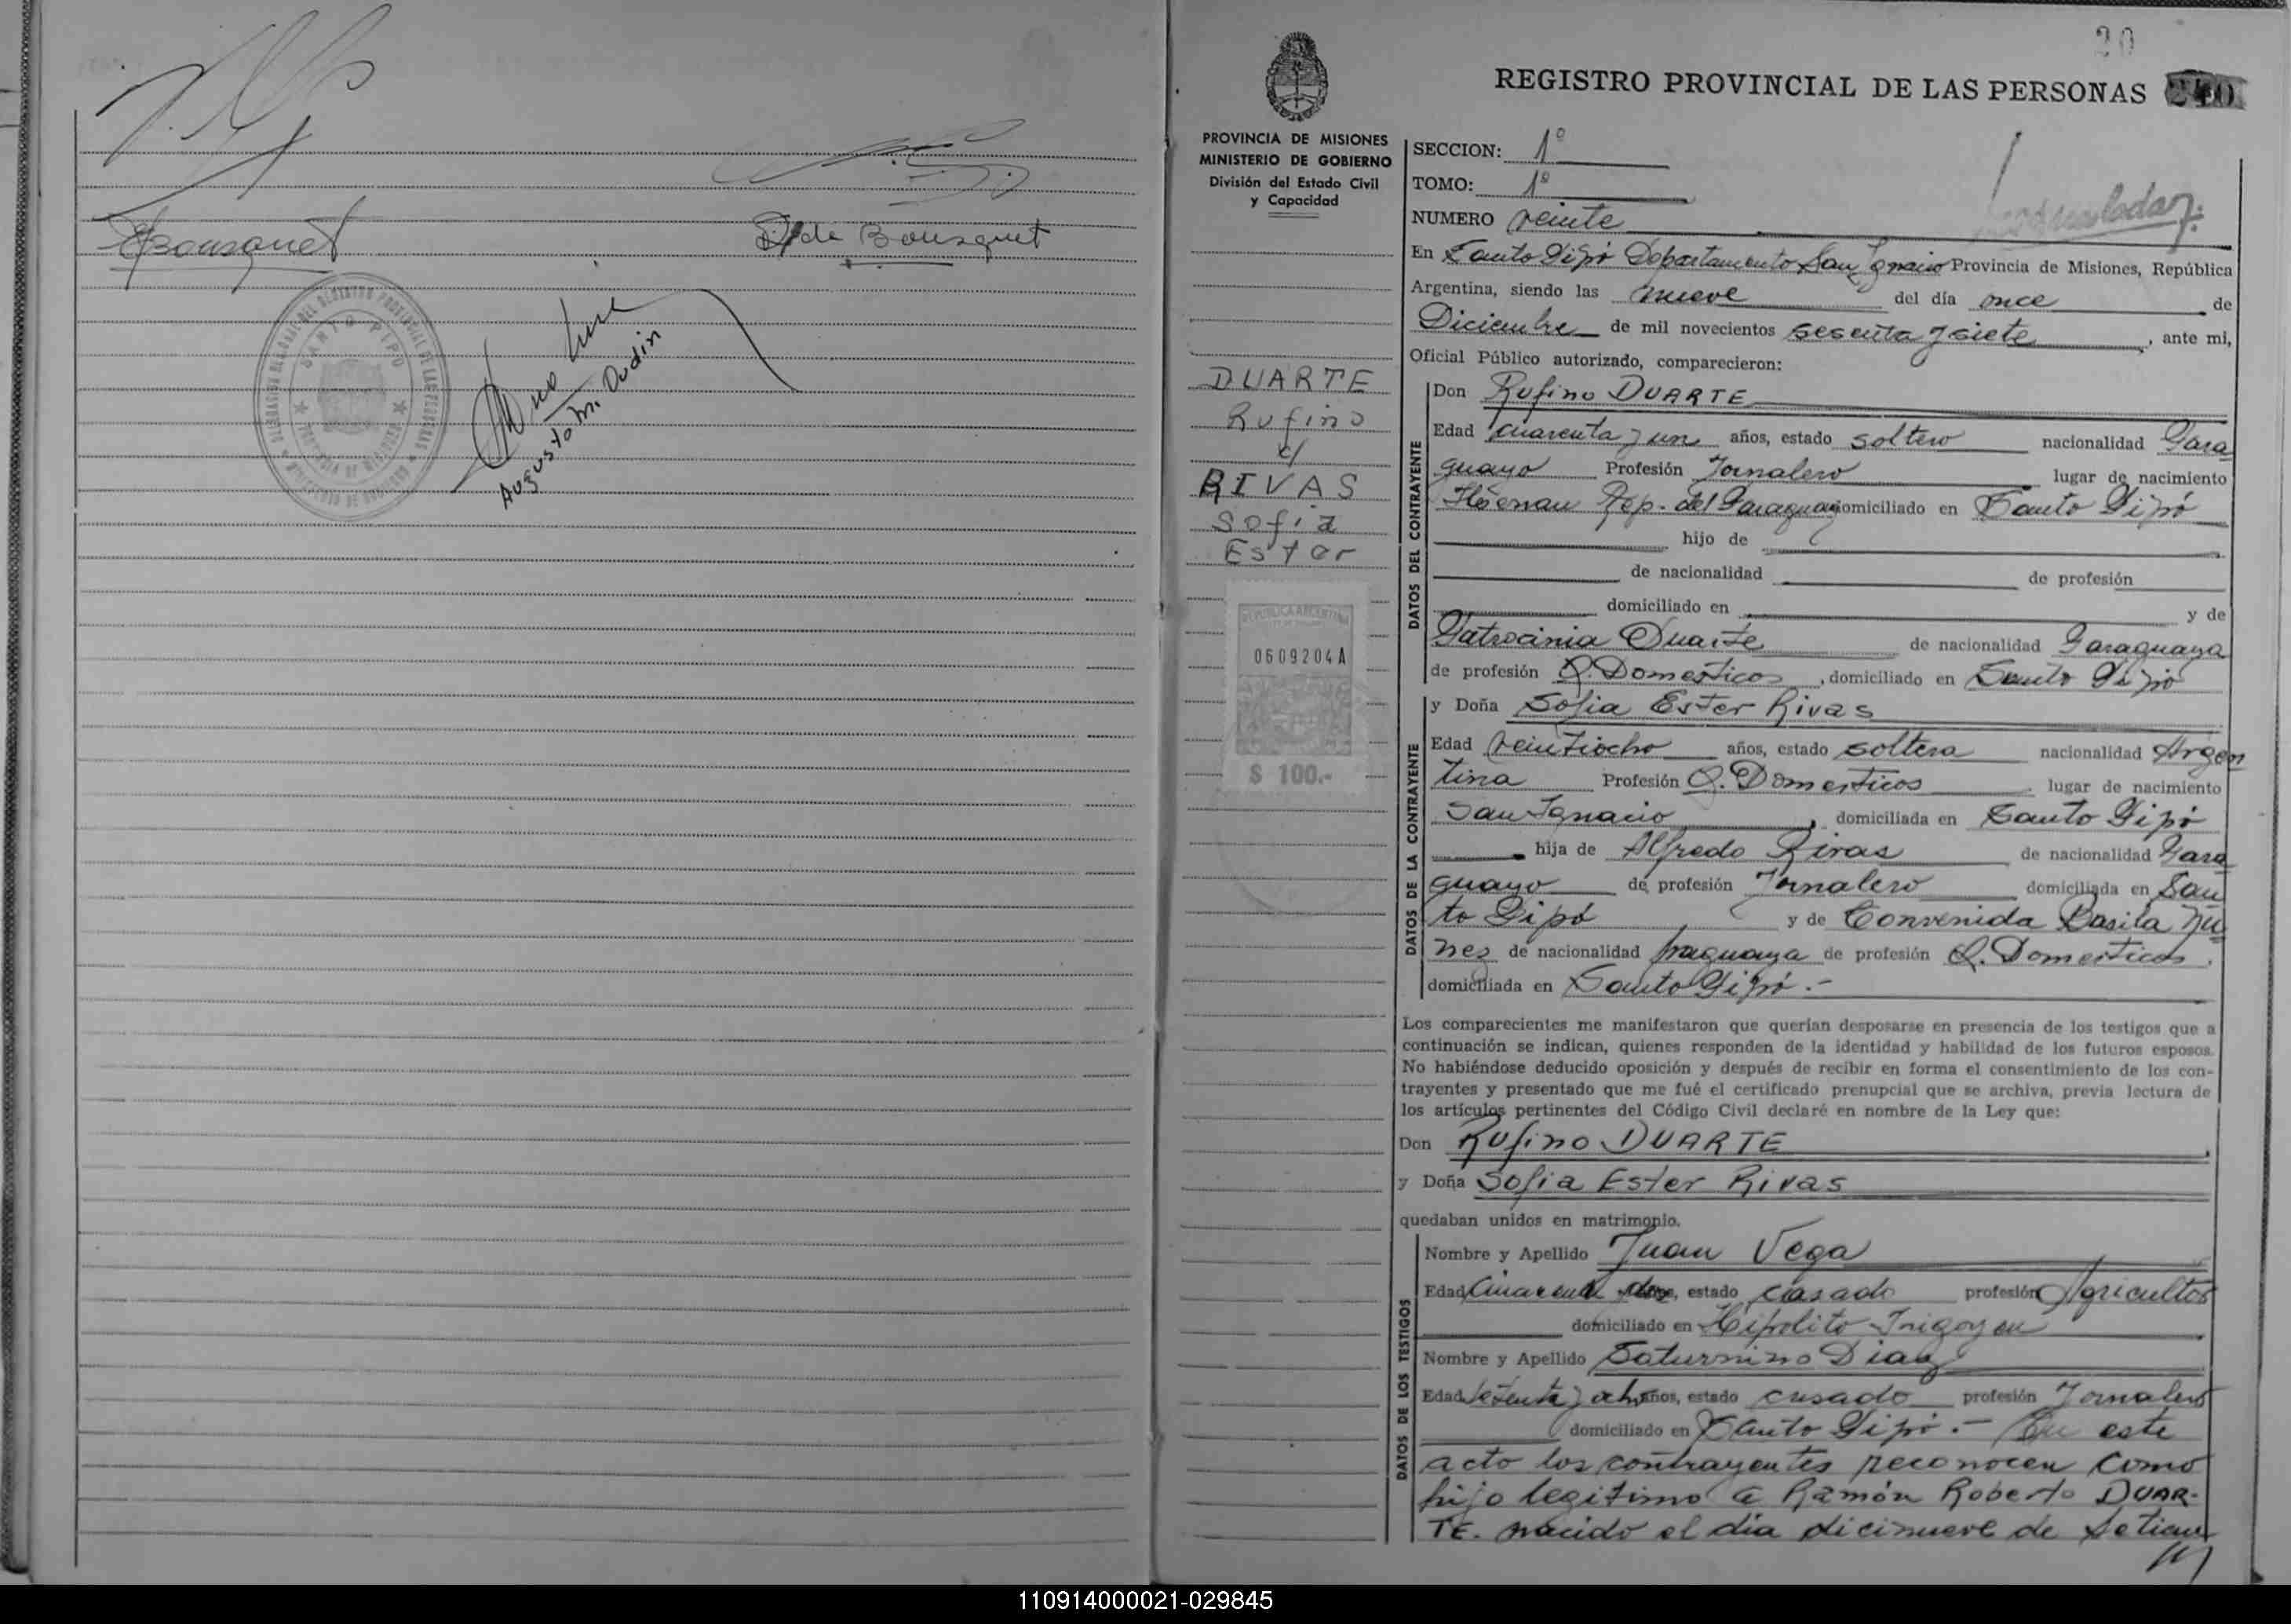 Bousquet
de Bousquet
SANTO PIPO
Augusto M. Dudin
20
REGISTRO PROVINCIAL DE LAS PERSONAS 240
PROVINCIA DE MISIONES
MINISTERIO DE GOBIERNO
División del Estado Civil
y Capacidad
DUARTE
Rufino
c/
RIVAS
Sofia
Ester
REPUBLICA ARGENTINA
0609204A
$ 100.-
SECCION: 1º
TOMO: 1º
NUMERO veinte
En Santo Pipó Departamento San Ignacio Provincia de Misiones, República
Argentina, siendo las nueve del día once de
Diciembre de mil novecientos sesenta y siete, ante mi,
Oficial Público autorizado, comparecieron:
DATOS DEL CONTRAYENTE
Don Rufino DUARTE
Edad cuarenta y un años, estado soltero nacionalidad Para
guayo Profesión Jornalero lugar de nacimiento
Hoenau Rep. del Paraguay domiciliado en Santo Pipó
hijo de
de nacionalidad de profesión
domiciliado en y de
Patrocinia Duarte de nacionalidad Paraguaya
de profesión Q. Domesticos, domiciliado en Santo Pipó
DATOS DE LA CONTRAYENTE
y Doña Sofia Ester Rivas
Edad veintiocho años, estado soltera nacionalidad Argen
tina Profesión Q. Domesticos lugar de nacimiento
San Ignacio, domiciliada en Santo Pipó
hija de Alfredo Rivas de nacionalidad Para
guayo de profesión Jornalero domiciliada en San
to Pipó y de Convenida Basila Nu
nez de nacionalidad praguaya de profesión Q. Domesticos,
domiciliada en Santo Pipó.-
Los comparecientes me manifestaron que querían desposarse en presencia de los testigos que a
continuación se indican, quienes responden de la identidad y habilidad de los futuros esposos.
No habiéndose deducido oposición y después de recibir en forma el consentimiento de los con-
trayentes y presentado que me fué el certificado prenupcial que se archiva, previa lectura de
los artículos pertinentes del Código Civil declaré en nombre de la Ley que:
Don Rufino DUARTE,
y Doña Sofia Ester Rivas
quedaban unidos en matrimonio.
DATOS DE LOS TESTIGOS
Nombre y Apellido Juan Vega
Edad años, estado casado profesión Agricultor
domiciliado en Hipolito Irigoyen
Nombre y Apellido Saturnino Diaz
Edad setenta y ocho años, estado casado profesión Jornalero
domiciliado en Santo Pipó.- En este
acto los contrayentes reconocen como
hijo legitimo a Ramón Roberto DUAR-
TE. nacido el dia dicinueve de Setiem
110914000021-029845